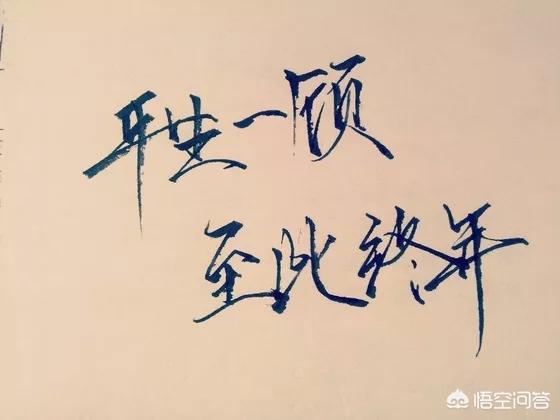 平生一顾
至此终年
悟空问答